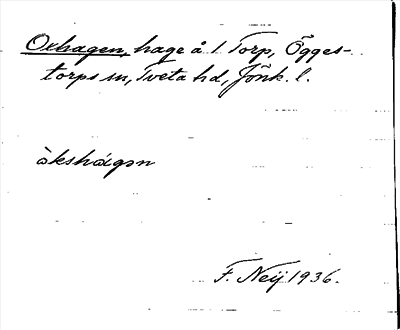 Oxhagen, hage å 1 Torp, Ögges-
torps sn, Tveta hd, Jönk. l.
àkshágən
F. Neij 1936.